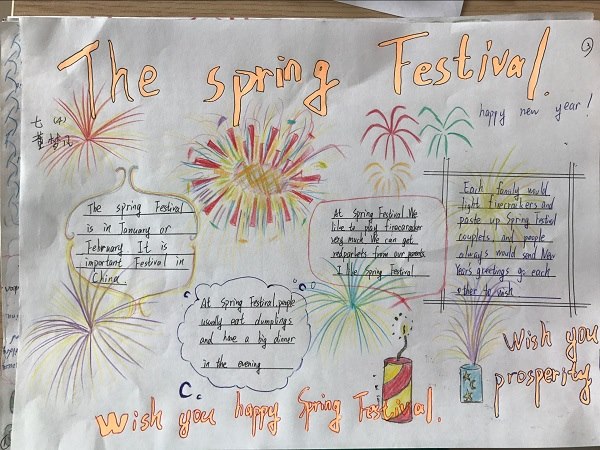 The Spring Festival.
③
happy new year!
七 (4)
The spring Festival
is in January or
February. It is
important Festival in
China.
At Spring Festival. We
like to play firecaraker
very much. We can get
redparkets from our parents.
I like Spring Festival
Each family would
light firecrackers and
paste up Spring Festival
couplets and people
always would send New
Years greetings go each
other to wish
At Spring Festival. people
usually eat dumplings
and have a big dinner
in the evening
Wish you
prosperity
Wish you happy Spring Festival.